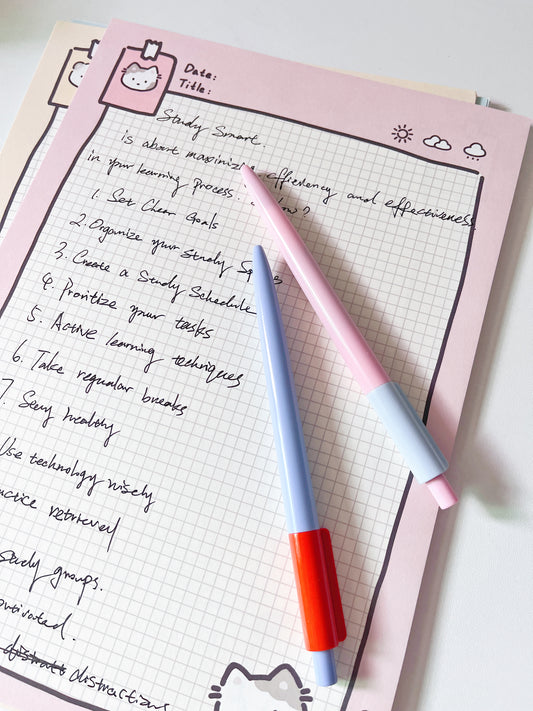 Date:
Title:
Study Smart.
is about maximizing efficiency and effectiveness
in your learning process. how?
1. Set Clear Goals
2. Organize your Study Spaces
3. Create a Study Schedule
4. Proritize your tasks
5. Active learning techniques
6. Take regular breaks
7. Stay healthy
Use technology wisely
retrieval
study groups.
distractions